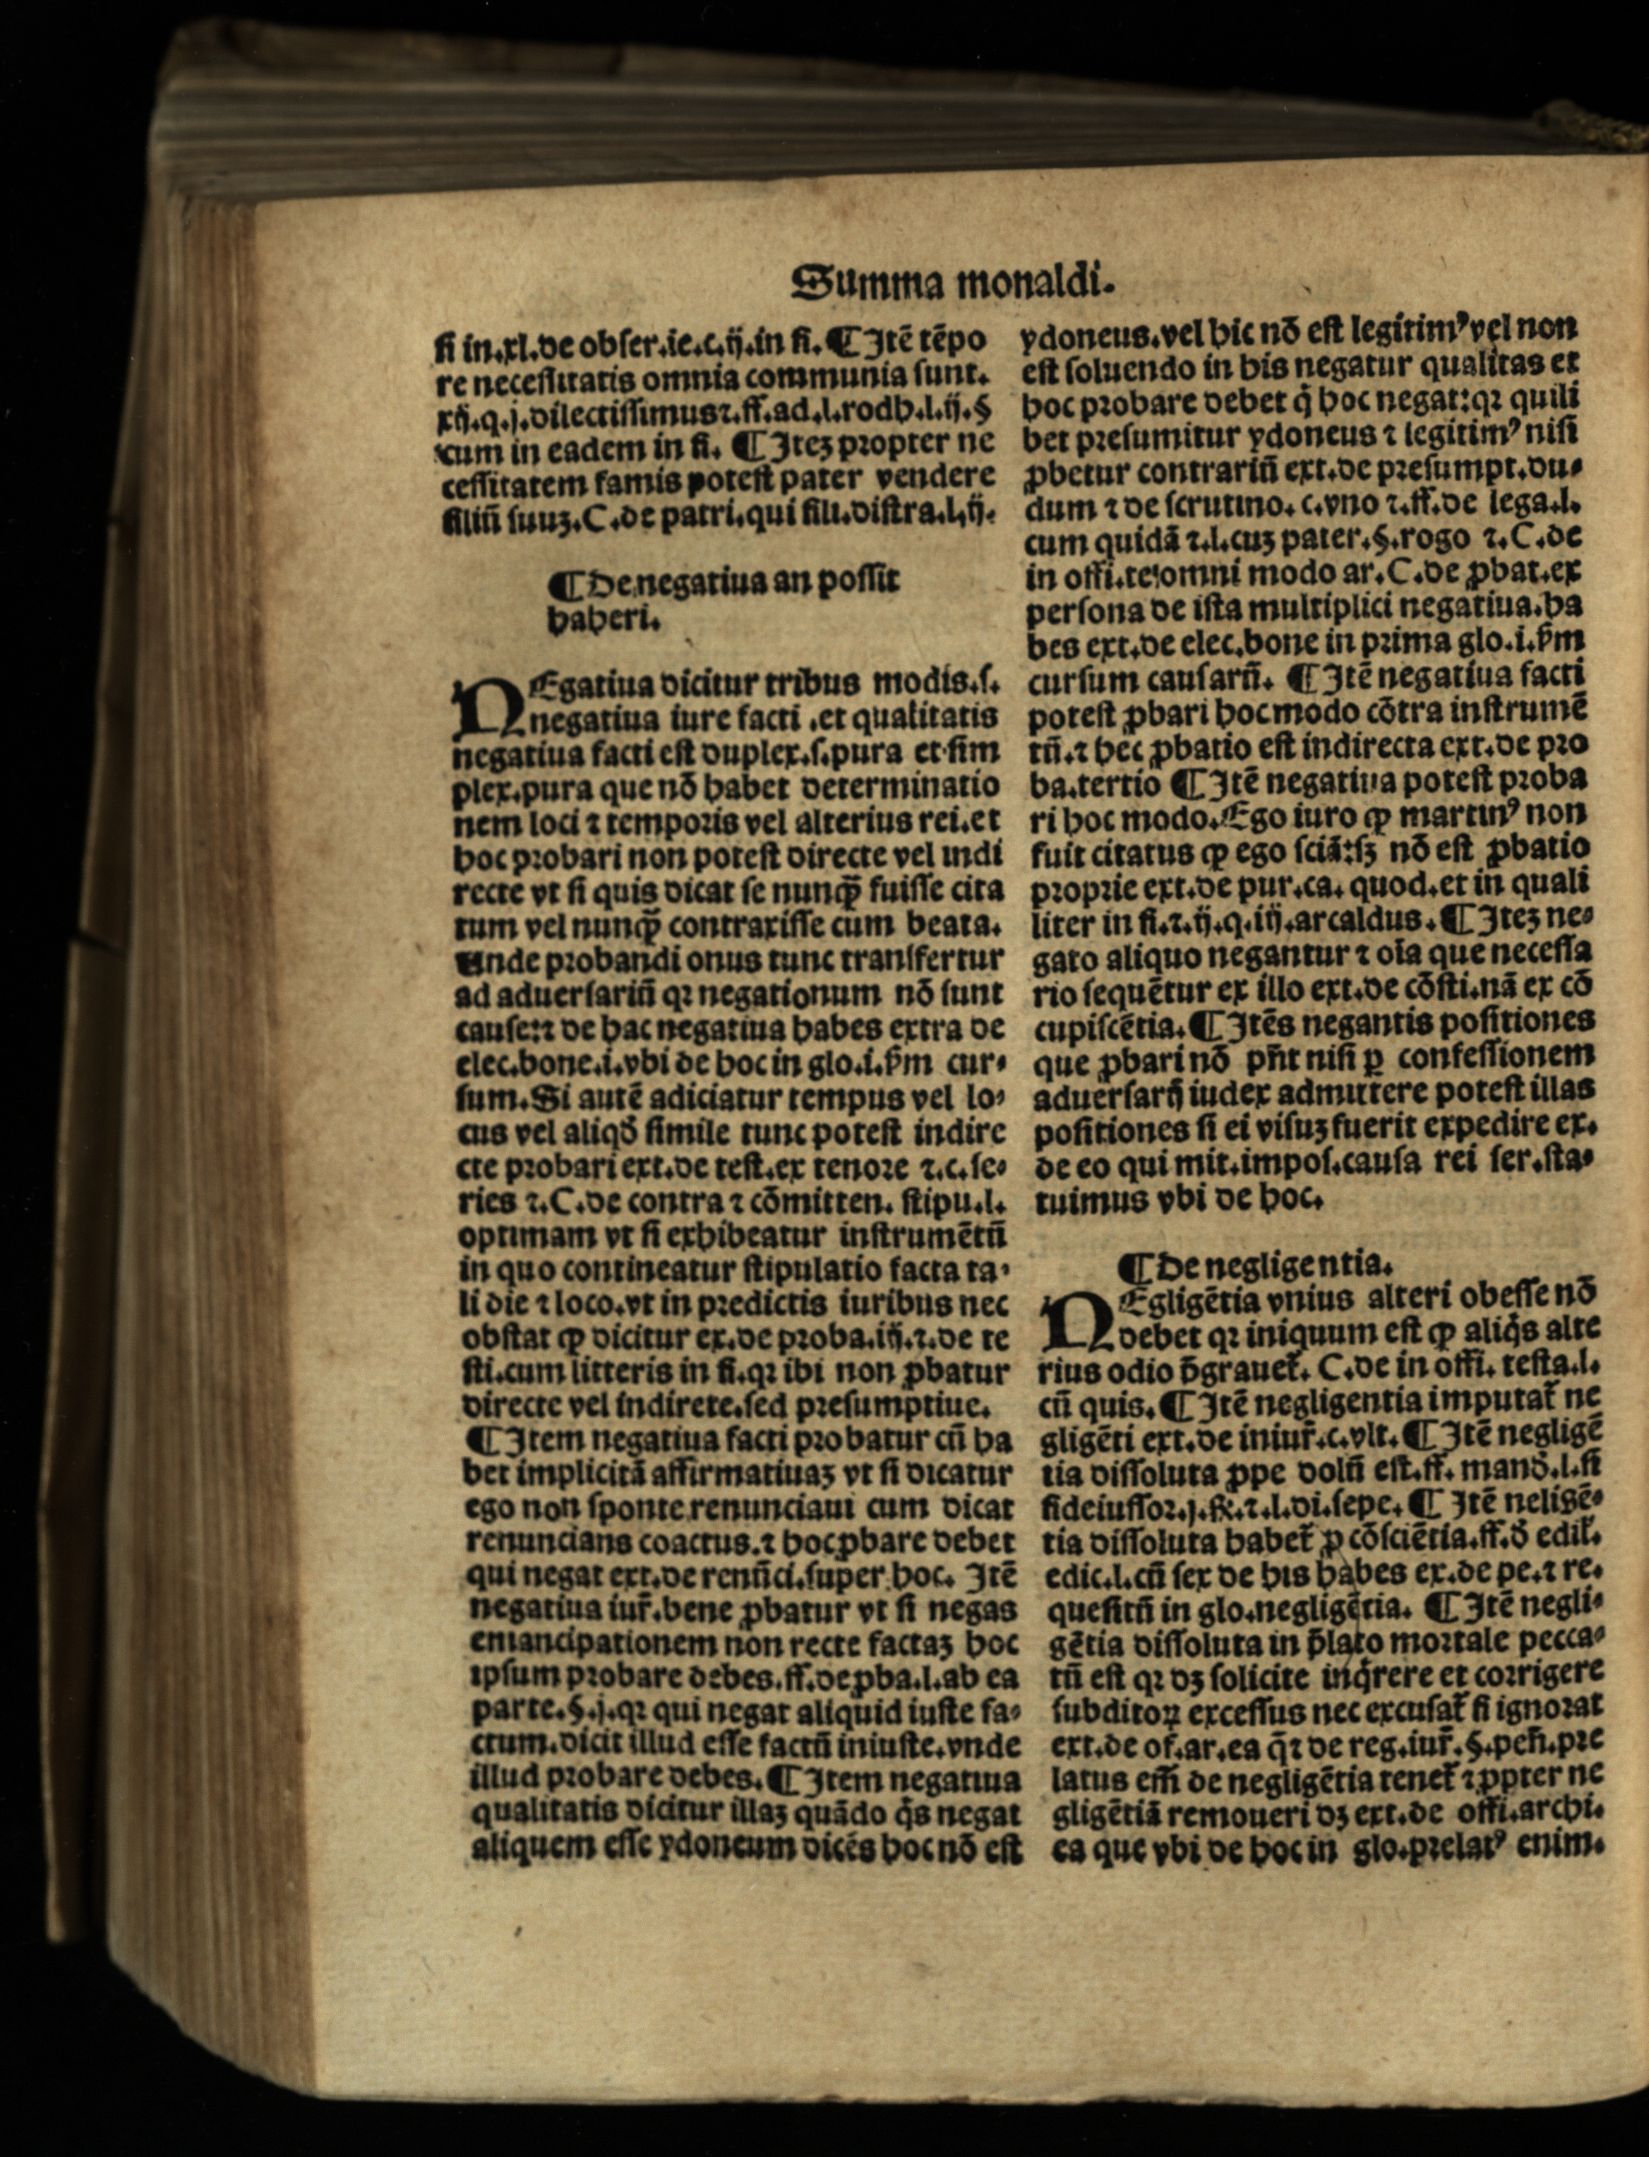 Summa monaldi.
si in.xl.de obser.ie.c.ij.in fi.¶Itē tēpo
re necessitatis omnia communia sunt.
xij.q.j.dilectissimus⁊.ff.ad.l.rodh.l.ij.§
cum in eadem in fi. ¶Iteꝫ propter ne
cessitatem famis potest pater vendere
filiū suuꝫ.C.de patri.qui fili.distra.l.ij.
¶De negatiua an possit
haberi.
NEgatiua dicitur tribus modis.s.
negatiua iure facti .et qualitatis
negatiua facti est duplex.s.pura et sim
plex.pura que nō habet determinatio
nem loci ⁊ temporis vel alterius rei.et
hoc probari non potest directe vel indi
recte vt si quis dicat se nunqꝫ̄ fuisse cita
tum vel nunqꝫ̄ contraxisse cum beata.
Unde probandi onus tunc transfertur
ad aduersariū qꝛ negationum nō sunt
cause:⁊ de hac negatiua habes extra de
elec.bone.i.vbi de hoc in glo.i.ẜm cur-
sum.Si autē adiciatur tempus vel lo-
cus vel aliqď simile tunc potest indire
cte probari ext.de test.ex tenore ⁊.c.se-
ries ⁊.C.de contra ⁊ cōmitten. stipu.l.
optimam vt si exhibeatur instrumētū
in quo contineatur stipulatio facta ta-
li die ⁊ loco.vt in predictis iuribus nec
obstat ꝙ dicitur ex.de proba.iij.⁊.de te
sti.cum litteris in fi.qꝛ ibi non ꝓbatur
directe vel indirete.sed presumptiue.
¶Item negatiua facti probatur cū ha
bet implicitā affirmatiuaꝫ vt si dicatur
ego non sponte renunciaui cum dicat
renuncians coactus.⁊ hoc ꝓbare debet
qui negat ext.de renūci.super hoc. Itē
negatiua iur̄.bene ꝓbatur vt si negas
emancipationem non recte factaꝫ hoc
ipsum probare debes.ff.de ꝓba.l.ab ea
parte.§.j.qꝛ qui negat aliquid iuste fa-
ctum.dicit illud esse factū iniuste.vnde
illud probare debes.¶Item negatiua
qualitatis dicitur illaꝫ quādo q̇s negat
aliquem esse ydoneum dicēs hoc nō est
ydoneus.vel hic nō est legitimꝰ vel non
est soluendo in his negatur qualitas et
hoc probare debet q̇ hoc negat:qꝛ quili
bet presumitur ydoneus ⁊ legitimꝰ nisi
ꝓbetur contrariū ext.de presumpt.du-
dum ⁊ de scrutino. c.vno ⁊.ff.de lega.l.
cum quidā ⁊.l.cuꝫ pater.§.rogo ⁊.C.de
in offi.te.omni modo ar.C.de ꝓbat.ex
persona de ista multiplici negatiua.ha
bes ext.de elec.bone in prima glo.i.ẜm
cursum causarū. ¶Itē negatiua facti
potest ꝓbari hoc modo cōtra instrumē
tū.⁊ hec ꝓbatio est indirecta ext.de pro
ba.tertio ¶Itē negatiua potest proba
ri hoc modo.Ego iuro ꝙ martinꝰ non
fuit citatus ꝙ ego sciā:sꝫ nō est ꝓbatio
proprie ext.de pur.ca. quod.et in quali
liter in fi.⁊.ij.q.iij.arcaldus.¶Iteꝫ ne-
gato aliquo negantur ⁊ oīa que necessa
rio sequētur ex illo ext.de cōsti.nā ex cō
cupiscētia.¶Itēs negantis positiones
que ꝓbari nō pn̄t nisi ꝑ confessionem
aduersarij iudex admittere potest illas
positiones si ei visuꝫ fuerit expedire ex.
de eo qui mit.impos.causa rei ser.sta-
tuimus vbi de hoc.
¶De negligentia.
NEgligētia vnius alteri obesse nō
debet qꝛ iniquum est ꝙ aliq̇s alte
rius odio p̄grauet̄. C.de in offi. testa.l.
cū quis.¶Itē negligentia imputat̄ ne
gligēti ext.de iniur̄.c.vlt.¶Itē negligē
tia dissoluta ꝓpe dolū est.ff. manď.l.si
fideiussor.j.§.⁊.l.di.sepe.¶ Itē neligē-
tia dissoluta habet̄ ꝓ cōsciētia.ff.ď edil̄.
edic.l.cū sex de his habes ex.de pe.⁊ re.
quesitū in glo.negligētia. ¶Itē negli-
gētia dissoluta in p̄lato mortale pecca-
tū est qꝛ dꝫ solicite inq̇rere et corrigere
subditoꝝ excessus nec excusat̄ si ignorat
ext.de of.ar.ea q̄⁊ de reg.iur̄.§.pen̄.pre
latus em̄ de negligētia tenet̄ ⁊ ꝓpter ne
gligētiā remoueri dꝫ ext.de offi.archi.
ea que vbi de hoc in glo.prelatꝰ enim.